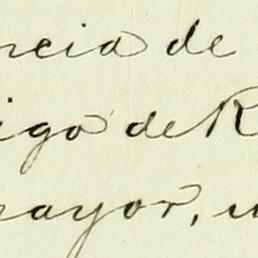 ncia de
igo de R
mayor, u